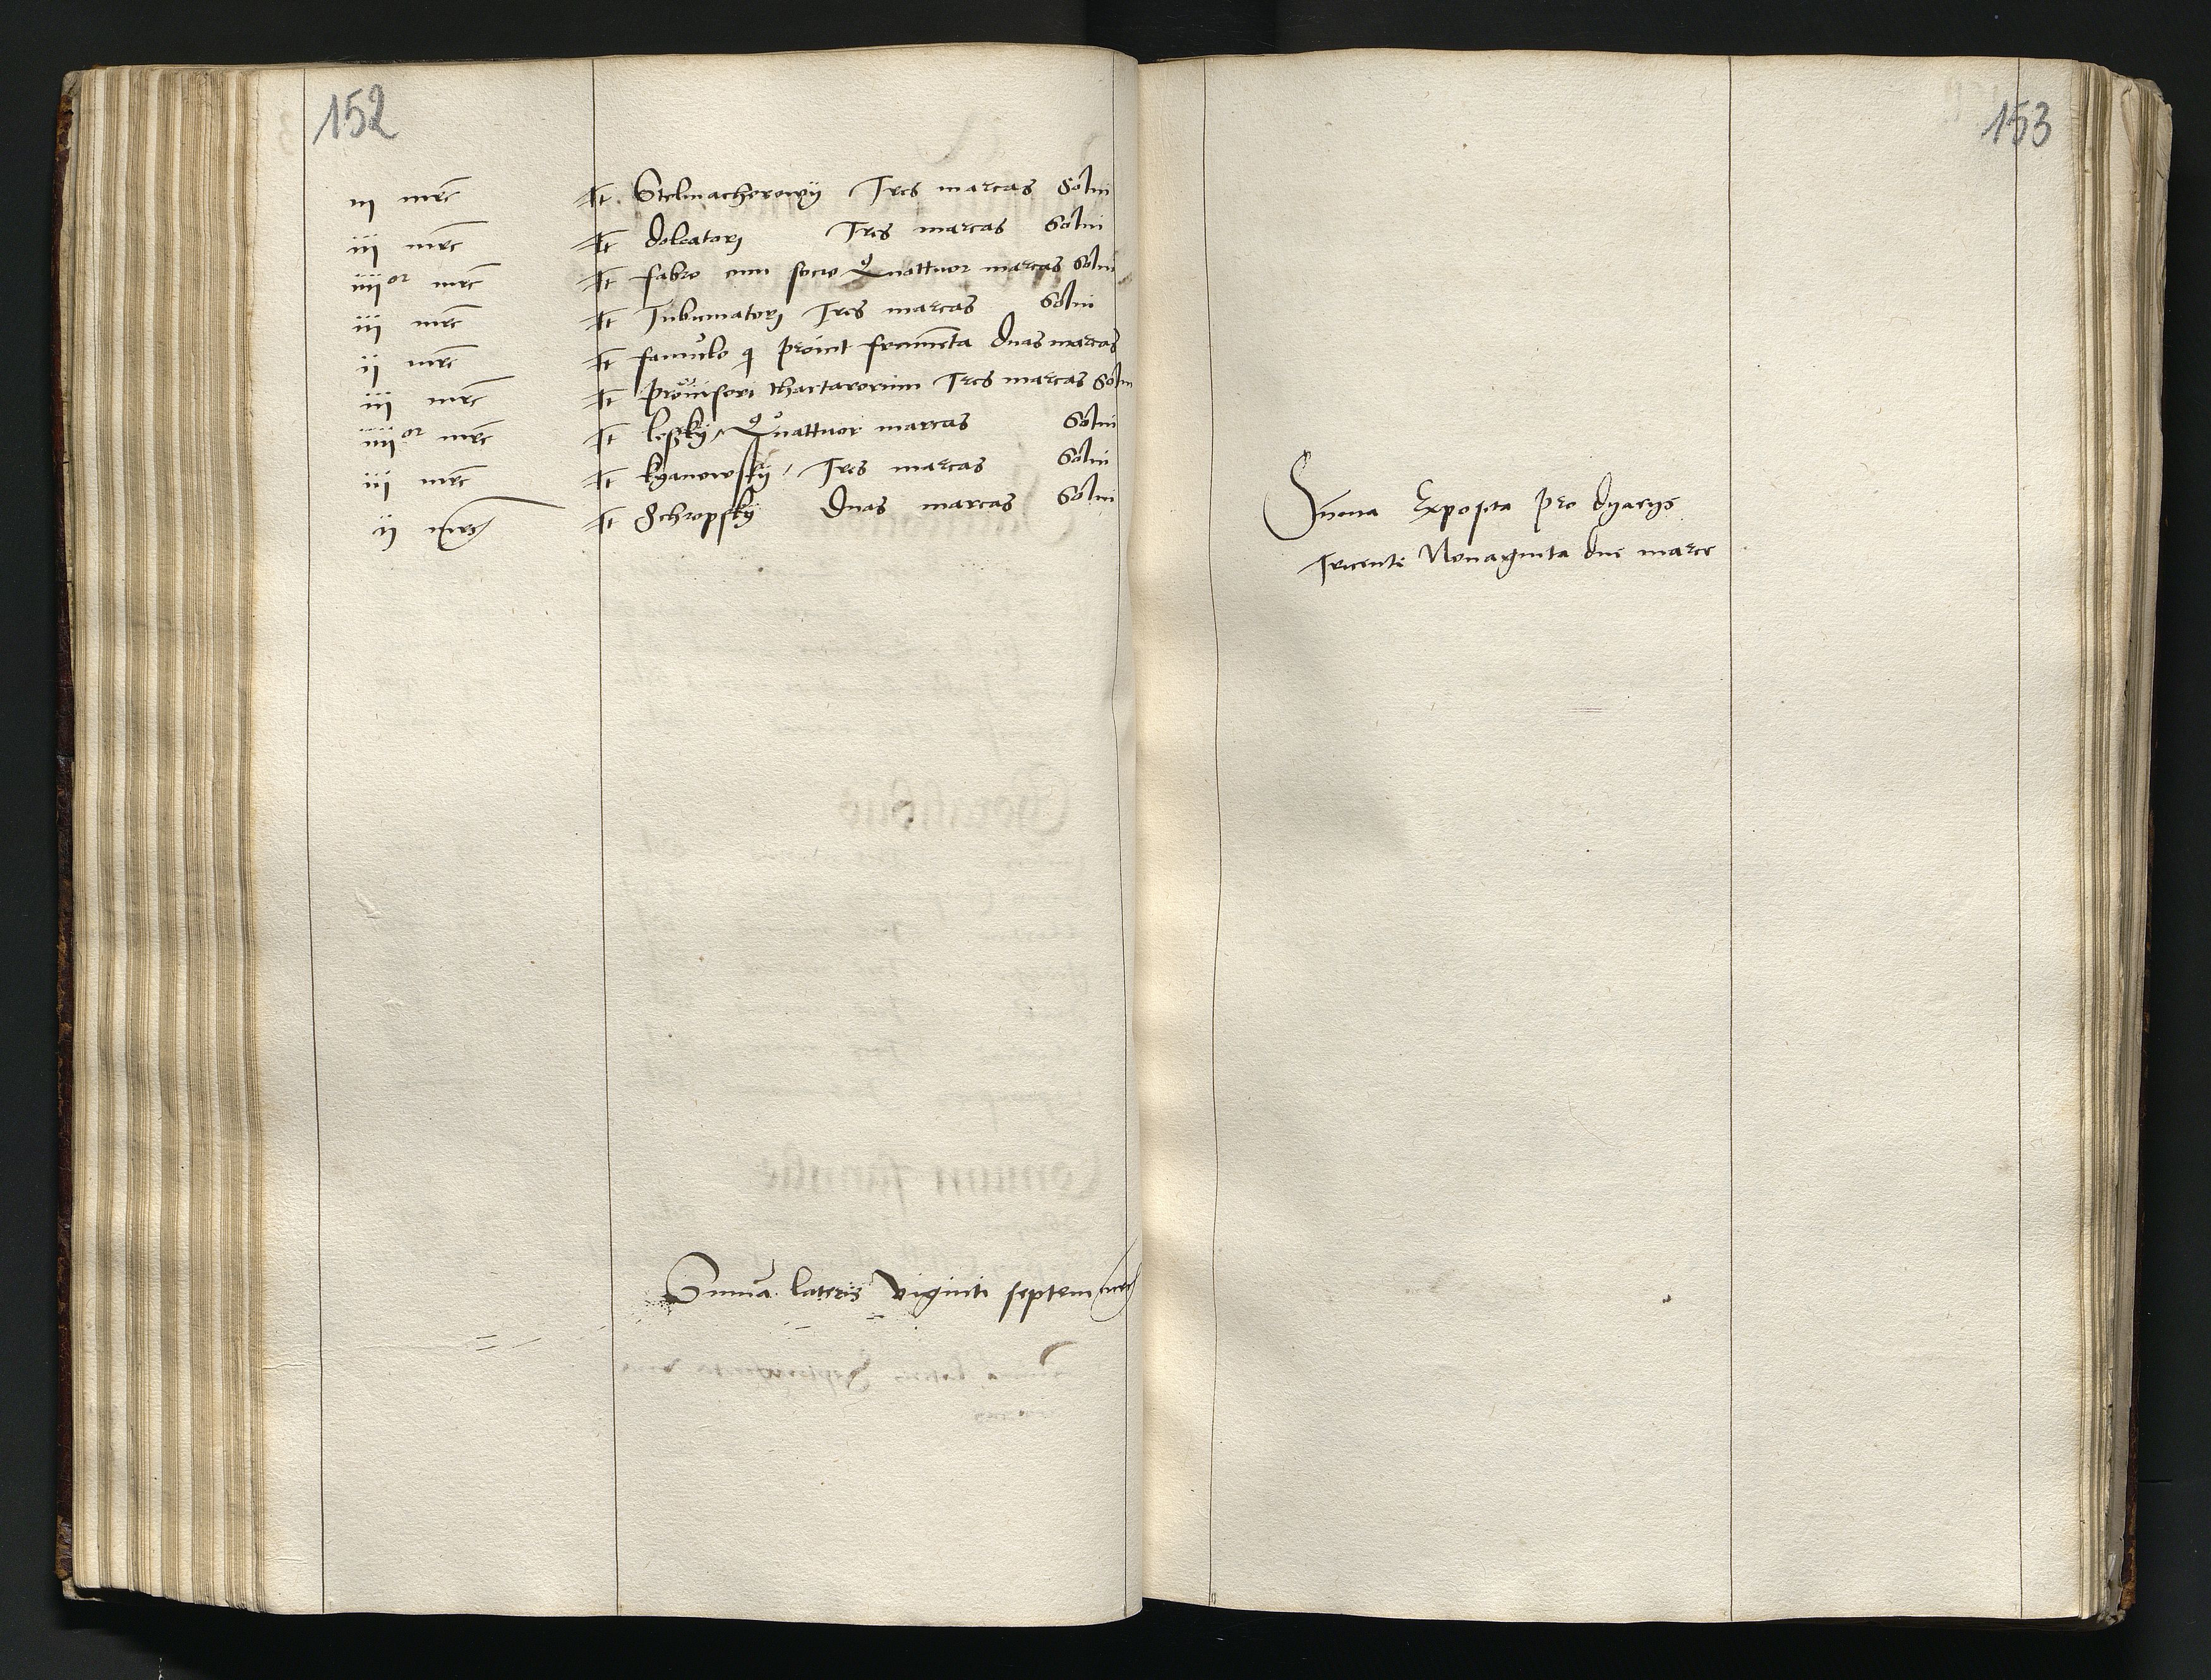 152
iii mrc It. Stelmacherowy Tres marcas Solui
iii mrc It doleatori Tres marcas Solui
iiiior mrc It fabro cum socio Quattuor marcas Solui
iii mrc It Tubicinatori Tres marcas Solui
ii mrc It famulo q frumenta duas marcas
iii mrc It prouisori thartarorum Tres marcas Solui
iiiior mrc It leszky Quattuor marcas Solui
iii mrc It kyanowsky Tres marcas Solui
ii mrc It Schropsky Duas marcas Solui
Suma lateris viginti septem mrc
153
Suma Exposita pro dyarijs
Tricenti Nonaginta due marce